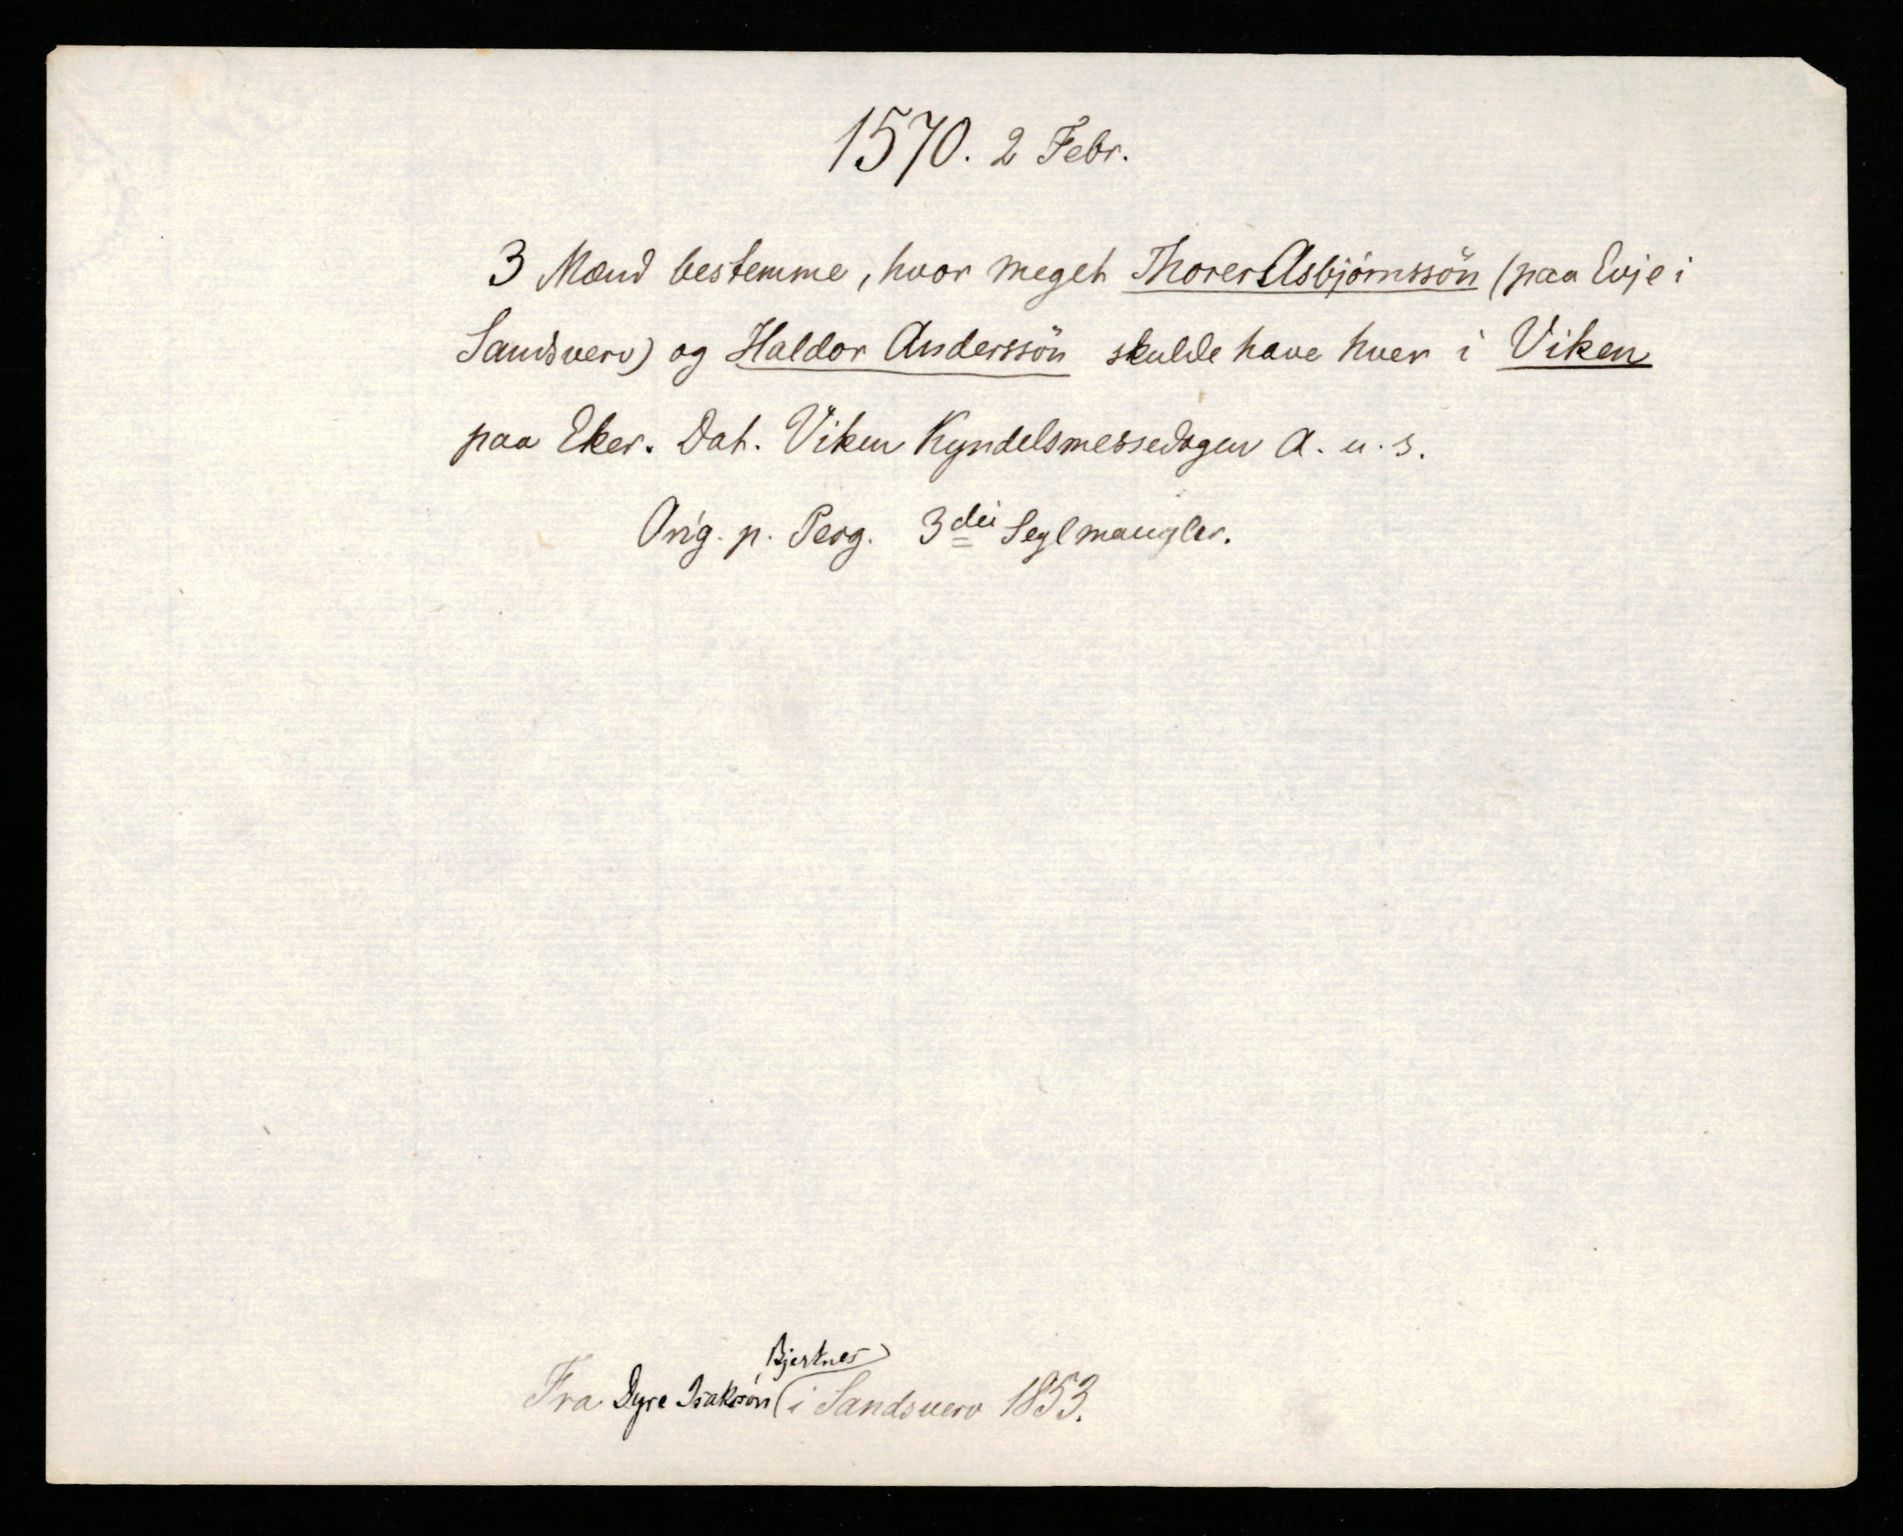 1570. 2 Febr.
3 Mænd bestemme, hvor meget Thorer Asbjörnssön (paa Evje i
Sandsverv) og Haldor Anderssön skulde have hver i Viken
paa Eker. Dat. Viken Kyndelsmessedagen A. u. s.
Orig. p. Perg. 3die Segl mangler.
Bjertnes
Fra Dyre Isaksön i Sandsverv 1853.